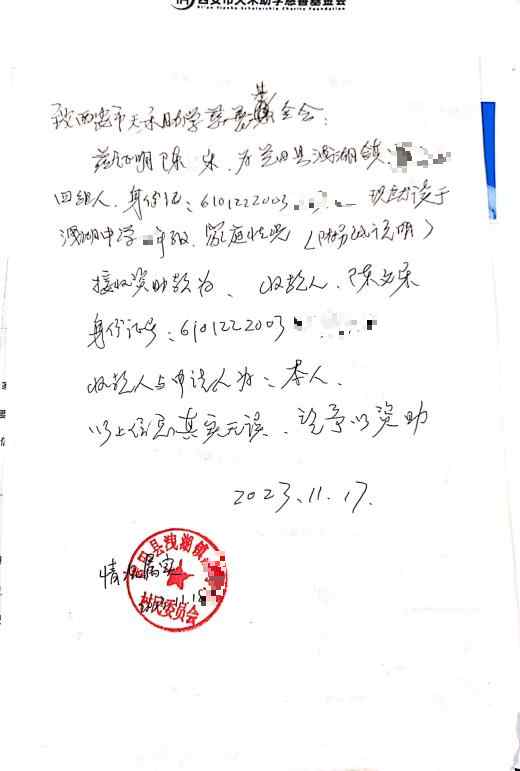 西安市天禾助学慈善基金会
Xi'an Tianhe Scholarship Charity Foundation
致西安市天禾助学慈善基金会:
兹证明陈 宋,为兰田县洩湖镇
四组人,身份证:6101222003 现就读于
洩湖中学 年级,家庭情况(附家庭说明)
接收资助款为、收款人、陈 宋
身份证号:6101222003
收款人与申请人为:本人、
以上信息真实无误、请予以资助
2023.11.17.
情况属实
11.18
田县洩湖镇
村民委员会